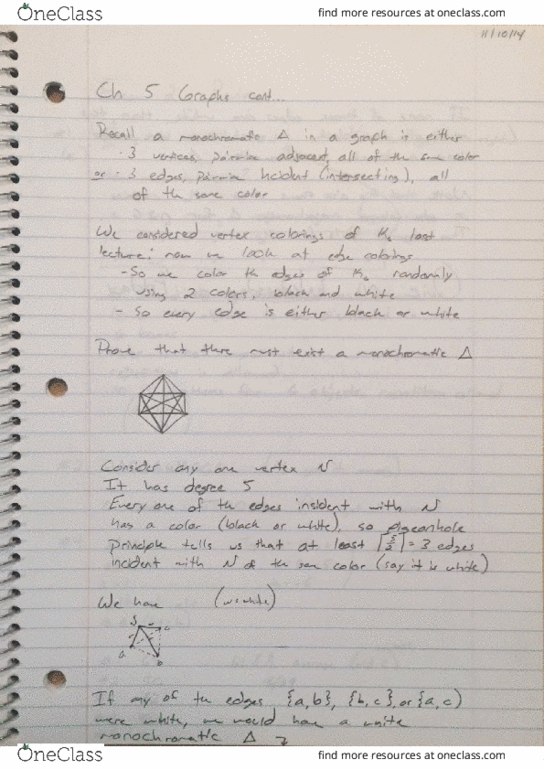 OneClass find more resources at oneclass.com
11/10/14
Ch 5 Graphs cont...
Recall a monochromatic Δ in a graph is either
· 3 vertices, pairwise adjacent, all of the same color
or · 3 edges, pairwise incident (intersecting), all
of the same color
We considered vertex colorings of K₆ last
lecture: now we look at edge colorings
- So we color the edges of K₆ randomly
using 2 colors, black and white
- So every edge is either black or white
Prove that there must exist a monochromatic Δ
Consider any one vertex N
It has degree 5
Every one of the edges insident with N
has a color (black or white), so pigeonhole
principle tells us that at least ⌈5/2⌉ = 3 edges
incident with N of the same color (say it is white)
We have (w=white)
a b
If any of the edges {a,b}, {b,c}, or {a,c}
were white, we would have a white
monochromatic Δ
OneClass find more resources at oneclass.com